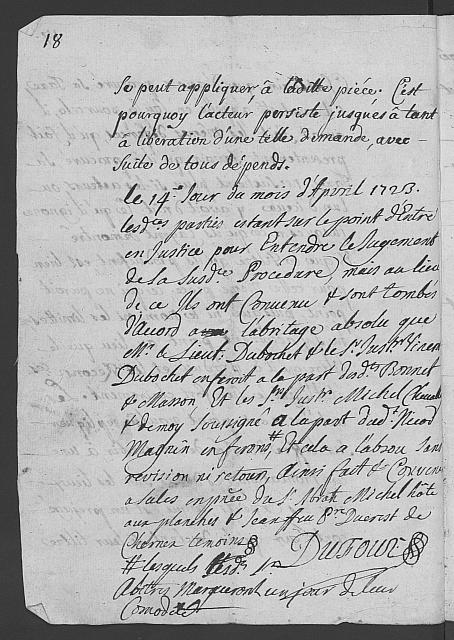 18
se peut appliquer, à laditte piéce. C'est
pourquoy l'acteur persiste jusqués à tant
à liberation d'une telle demande, avec
suite de tous dépends.
le 14e Jour du mois d'Apvril 1723.
lesdes parties estant sur le point d'Entré
en Justice pour Entendre le Jugement
de la Susde Procedure, mais au lieu
de ce Ils ont Convenu & sont tombés
d'Acord a l'abritage absolu que
Mr. le Lieut. Dubochet & le Sr. Justr.
Dubochet en feroit a la part desds Bonnet
& Masson Et les Srs Justr. Michel
& de moy Soussigné a la part dud.
Magnin en feront, Et cela a l'absou sans
revision ni retour, Ainsi fait & Conven
a Sales en prée du Sr. Michel hôte
aux planches & Jean ffeu de
Cherner temoins
DUFOUR
# lesquels lesds. Srs.
Abitres Marqueront un jour de leur
Comodité